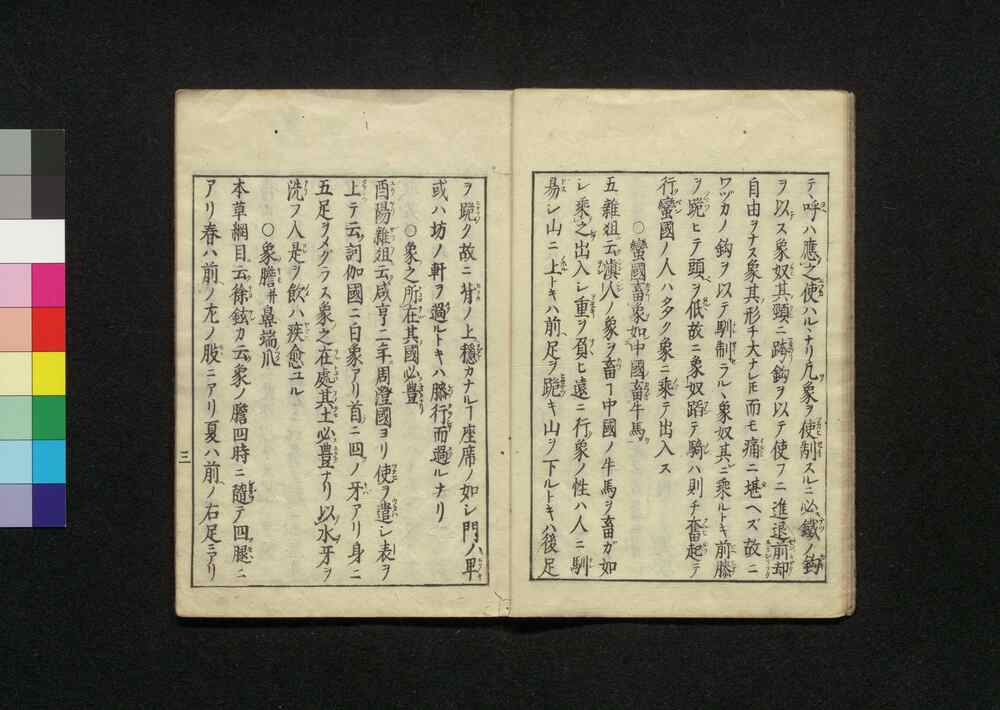 テ呼ハ應之使ハルヽナリ凡象ヲ使制スルニ必鐵ノ鈎
ヲ以ス象奴其頸ニ跨鈎ヲ以テ使フニ進退前却
自由ヲナス象其形チ大ナレ𪜈而モ痛ニ堪ヘズ故ニ
ワヅカノ鈎ヲ以テ馴制ラルヽ象奴其ニ乘ルトキ前膝
ヲ跪ヒテ頭ヲ低故ニ象奴蹈テ騎ハ則チ奮起テ
行蠻國ノ人ハ多ク象ニ乘テ出入ス
○蠻國畜象如中國畜牛馬
五雜俎云滇人ノ象ヲ畜ヿ中國ノ牛馬ヲ畜ガ如
シ乘之出入シ重ヲ負ヒ遠ニ行象ノ性ハ人ニ馴
易シ山ニ上トキハ前足ヲ跪キ山ヲ下ルトキハ後足
ヲ跪ク故ニ背ノ上穩カナルヿ座席ノ如シ門ノ卑
或ハ坊ノ軒ヲ過ルトキハ膝行而過ルナリ
○象之所在其國必豐
酉陽雜俎云咸亨二年周澄國ヨリ使ヲ遣シ表ヲ
上テ云訶伽國ニ白象アリ首ニ四ノ牙アリ身ニ
五足ヲメグラス象之在處其土必豐ナリ以水牙ヲ
洗フ人是ヲ飲ハ疾愈ユル
○象膽并鼻端爪
本草綱目云徐鉉カ云象ノ膽四時ニ隨テ四腿ニ
アリ春ハ前ノ左ノ股ニアリ夏ハ前ノ右足ニアリ
三